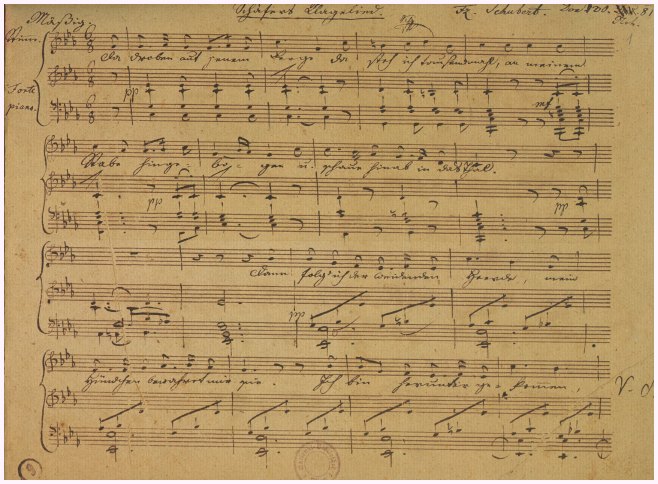 Schäfers Klagelied.
Mäßig.
Fr. Schubert.
Forte
piano.
Da droben auf jenem Berge da steh ich tausendmahl, an meinem
pp
mf
Stabe hinge- bo- gen u. schaue hinab in das Thal.
pp
pp
Dann folg ich der weidenden Heerde, mein
pp
Hündchen bewahret mir sie. Ich bin herunter ge- kommen,